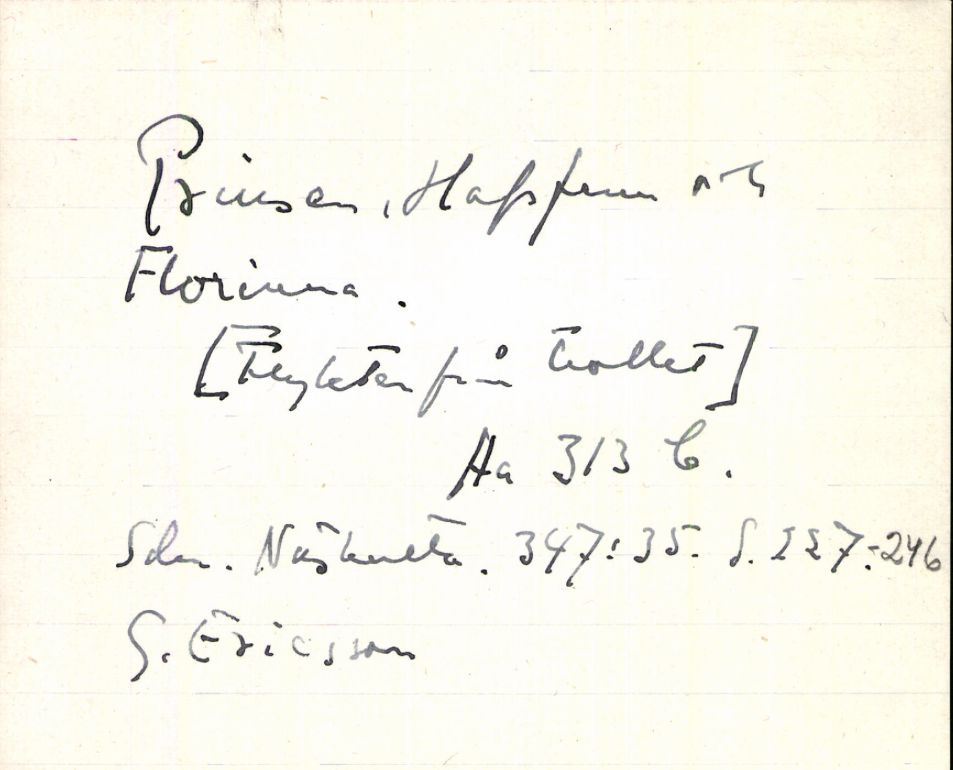 Prinsen, Hafsfrun och
Florinna.
[Flykten från trollet]
Aa 313 C.
Sdm. Näshulta. 347:35. S. 227-246
G. Ericsson